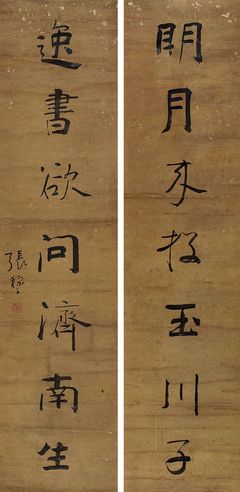 明月来投玉川子
逸書欲問濟南生
張